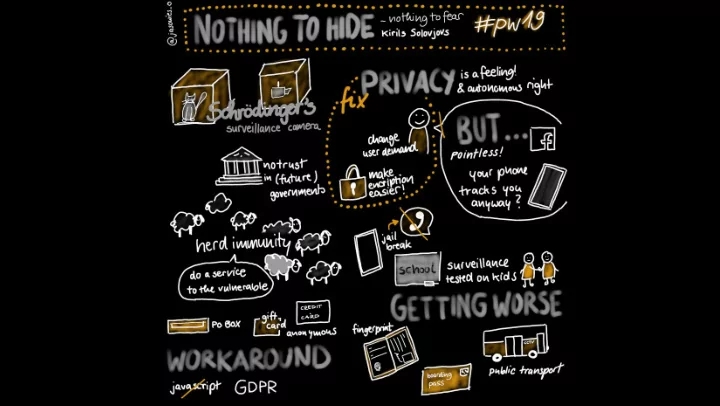 @jasowies.o
NOTHING TO HIDE
- nothing to fear
Kirils Solovjovs
#pw19
Schrödinger's
surveillance camera
fix
PRIVACY
is a feeling!
& autonomous right
change
user demand
make
encription
easier!
BUT...
pointless!
f
your phone
tracks you
anyway?
no trust
in (future)
governments
herd immunity
do a service
to the vulnerable
jail
break
school
surveillance
tested on kids
GETTING WORSE
PO BOX
gift
card
CREDIT
CARD
anonymous
WORKAROUND
javascript
GDPR
fingerprint
boarding
pass
CCTV
public transport